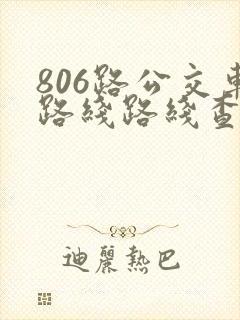 806路公交車
路綫路綫查
迪麗熱巴